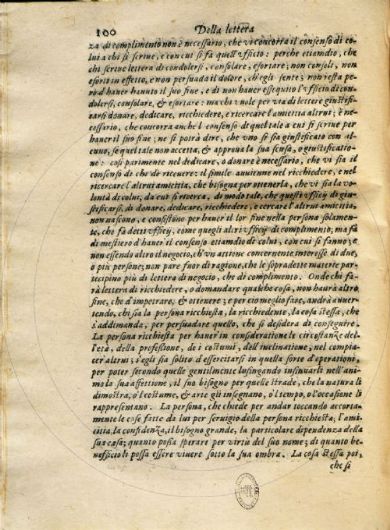 100 Della lettera
za di complimento non è necessario, che vi concorra il consenso di co-
lui a chi si scriue, e con cui si fa quell'vfficio: perche etiamdio, che
chi scriue lettera di condolersi, consolare, esortare; non consoli, non
esorti in effetto, e non persuada il dolore, ch'egli sente; non resta pe-
rò d'hauer hauuto il suo fine, e di non hauer essequito l'vfficio di con-
dolersi, consolare, & esortare: ma chi vuole per via di lettere giustifi-
carsi, donare, dedicare, ricchiedere, e ricercare l'amicitia altrui; è ne-
cessario, che concorra anche il consenso di quel tale a cui si scriue per
hauer il suo fine; ne si potrà dire, che vno si sia giustificato con al-
cuno, se quel tale non accetta, & approua la sua scusa, o giustificatio-
ne: così parimente nel dedicare, o donare è necessario, che vi sia il
consenso di chi dè riceuere: il simile auuiene nel ricchiedere, e nel
ricercare l'altrui amicitia, che bisogna per ottenerla, che vi sia la vo-
lontà di colui, da cui si ricerca, di modo tale, che questi vfficij di giu-
stificarsi, di donare, dedicare, ricchiedere, e cercare l'altrui amicitia,
non nascono, e consistono per hauer il lor fine nella persona solamen-
te, che fà detti vfficij, come quegli altri vfficij di complimento, ma fà
di mestiero d'hauer il consenso etiamdio di colui, con cui si fanno; e
non essendo altro il negocio, ch'vn attione concernente interesse di dne,
o più persone; non pare fuor di ragione, che le sopradette materie par-
tecipino più di lettera di negocio, che di complimento. Onde chi fa-
rà lettera di ricchiedere, o domandare qualche cosa, non haurà altro
fine, che d'impetrare, & ottenere; e per ciò meglio fare, andrà auuer-
tendo, chi sia la persona ricchiesta, la ricchiedente, la cosa stessa, che
s'addimanda, per persuadere quello, che si desidera di conseguire.
La persona ricchiesta per hauer in consideratione le circostanze del-
l'età, della professione, de i costumi, dell'inclinatione, nel compia-
cer altrui; s'egli sia solito d'essercitarsi in quella sorte d'operationi,
per poter secondo quelle gentilmente lusingando insinuarsi nell'ani-
mo la sua affettione, il suo bisogno per quelle strade, che la natura li
dimostra, o'l costume, & arte gli insegnano, o'l tempo, o l'occasione li
rappresentano. La persona, che chiede per andar toccando accorta-
mente le cose fatte da lui per seruigio della persona ricchiesta; l'ami-
citia, la confidenza, il bisogno grande, la particolare dipendenza della
sua casa; quanto possa sperare per virtù del suo nome; di quanto be-
neficio li possa essere viuere sotto la sua ombra. La cosa stessa poi,
che si